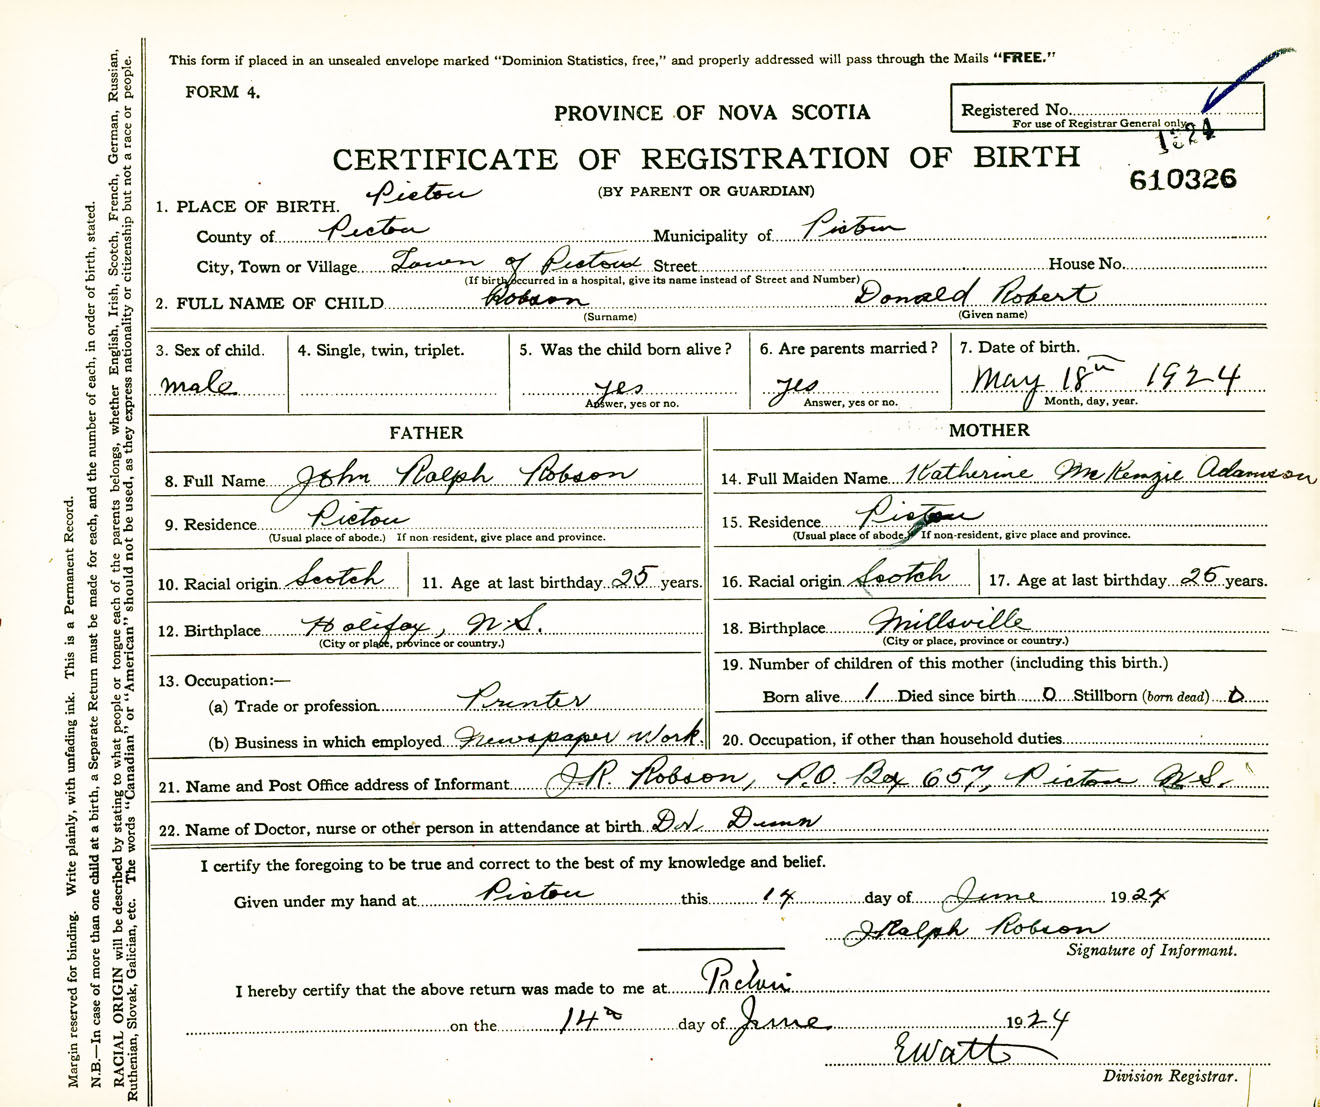 This form if placed in an unsealed envelope marked "Dominion Statistics, free," and properly addressed will pass through the Mails "FREE."
FORM 4.
PROVINCE OF NOVA SCOTIA
Registered No.
For use of Registrar General only
CERTIFICATE OF REGISTRATION OF BIRTH
(BY PARENT OR GUARDIAN)
610326
1. PLACE OF BIRTH. Pictou
County of Pictou Municipality of Pictou
City, Town or Village Town of Pictou Street House No.
(If birth occurred in a hospital, give its name instead of Street and Number)
2. FULL NAME OF CHILD Robson Donald Robert
(Surname) (Given name)
3. Sex of child. 4. Single, twin, triplet. 5. Was the child born alive? 6. Are parents married? 7. Date of birth.
male yes yes May 18th 1924
Answer, yes or no. Answer, yes or no. Month, day, year.
FATHER MOTHER
8. Full Name John Ralph Robson 14. Full Maiden Name Katherine McKenzie Adamson
9. Residence Pictou 15. Residence Pictou
(Usual place of abode.) If non-resident, give place and province. (Usual place of abode.) If non-resident, give place and province.
10. Racial origin Scotch 11. Age at last birthday 25 years. 16. Racial origin Scotch 17. Age at last birthday 25 years.
12. Birthplace Halifax, N.S. 18. Birthplace Millsville
(City or place, province or country.) (City or place, province or country.)
13. Occupation:— 19. Number of children of this mother (including this birth.)
(a) Trade or profession Printer Born alive 1 Died since birth 0 Stillborn (born dead) 0
(b) Business in which employed Newspaper Work. 20. Occupation, if other than household duties
21. Name and Post Office address of Informant J.R. Robson, P.O. Box 657, Pictou N.S.
22. Name of Doctor, nurse or other person in attendance at birth Dr. Dunn
I certify the foregoing to be true and correct to the best of my knowledge and belief.
Given under my hand at Pictou this 14 day of June 1924
J Ralph Robson
Signature of Informant.
I hereby certify that the above return was made to me at Pictou
on the 14th day of June 1924
E Watt
Division Registrar.
Margin reserved for binding. Write plainly, with unfading ink. This is a Permanent Record.
N.B.—In case of more than one child at a birth, a Separate Return must be made for each, and the number of each, in order of birth, stated.
RACIAL ORIGIN will be described by stating to what people or tongue each of the parents belongs, whether English, Irish, Scotch, French, German, Russian,
Ruthenian, Slovak, Galician, etc. The words "Canadian" or "American" should not be used, as they express nationality or citizenship but not a race or people.